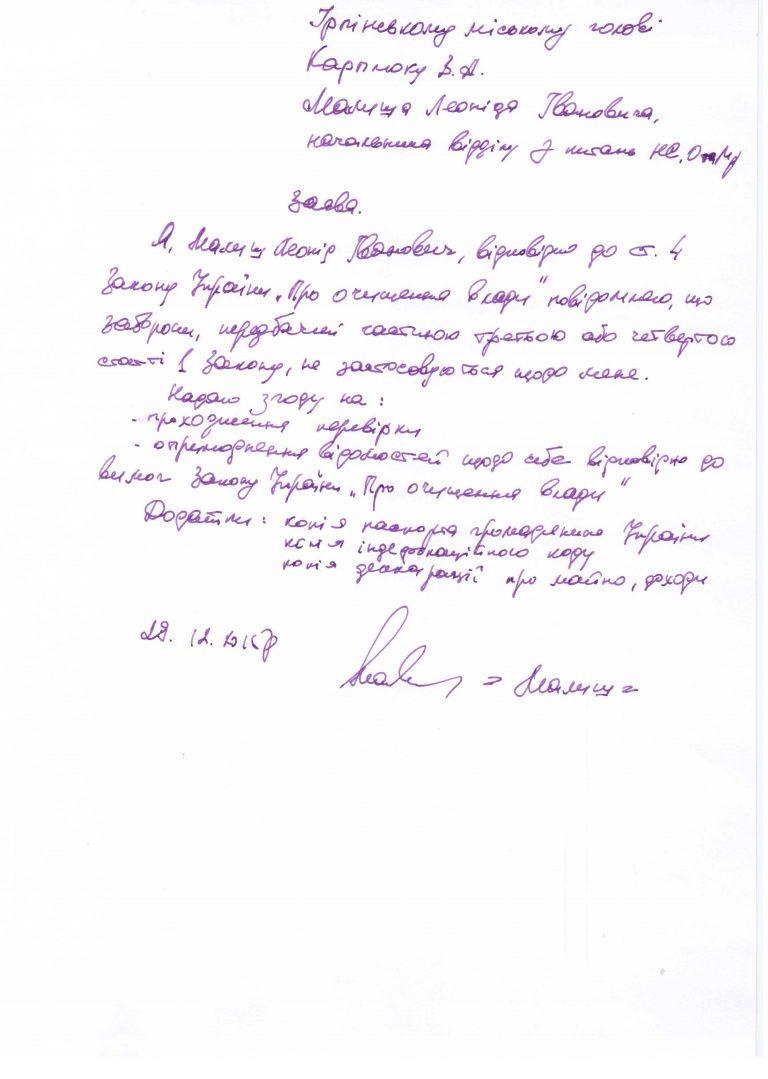 Ірпінському міському голові
Карплюку В.А.
Малища Леоніда Івановича,
начальника відділу з питань НС, О та МР
Заява.
Я, Малищ Леонід Іванович, відповідно до ст. 4
Закону України „Про очищення влади" повідомляю, що
заборони, передбачені частиною третьою або четвертою
статті 1 Закону, не застосовуються щодо мене.
Надаю згоду на:
- проходження перевірки
- оприлюднення відомостей щодо себе відповідно до
вимог Закону України „Про очищення влади"
Додатки: копія паспорта громадянина України
копія ідедефікаційного коду
копія декларації про майно, доходи
29. 12.
= Малищ =